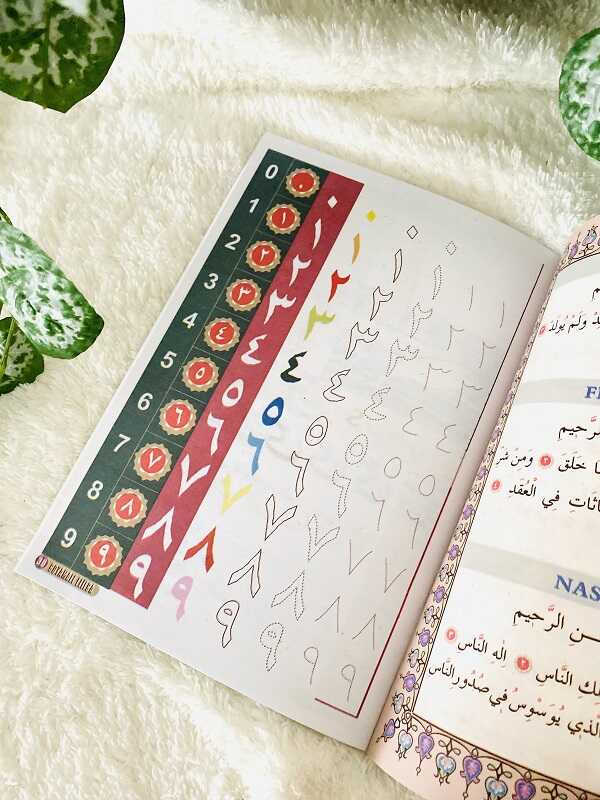 0 ٠ ٠ ٠ ٠ ٠
1 ١ ١ ١ ١ ١ ١ ١
2 ٢ ٢ ٢ ٢ ٢ ٢ ٢
3 ٣ ٣ ٣ ٣ ٣ ٣ ٣
4 ٤ ٤ ٤ ٤ ٤ ٤ ٤
5 ٥ ٥ ٥ ٥ ٥ ٥ ٥
6 ٦ ٦ ٦ ٦ ٦ ٦ ٦
7 ٧ ٧ ٧ ٧ ٧ ٧ ٧
8 ٨ ٨ ٨ ٨ ٨ ٨ ٨
9 ٩ ٩ ٩ ٩ ٩ ٩ ٩
وَلَمْ يُولَدْ
رَّحِيمِ
خَلَقَ ٢ وَمِنْ شَرِّ
اثَاتِ فِي الْعُقَدِ ٤
NAS
نِ الرَّحِيمِ
لِكِ النَّاسِ ٢ اِلٰهِ النَّاسِ ٣
الَّذِي يُوَسْوِسُ فِي صُدُورِ النَّاسِ